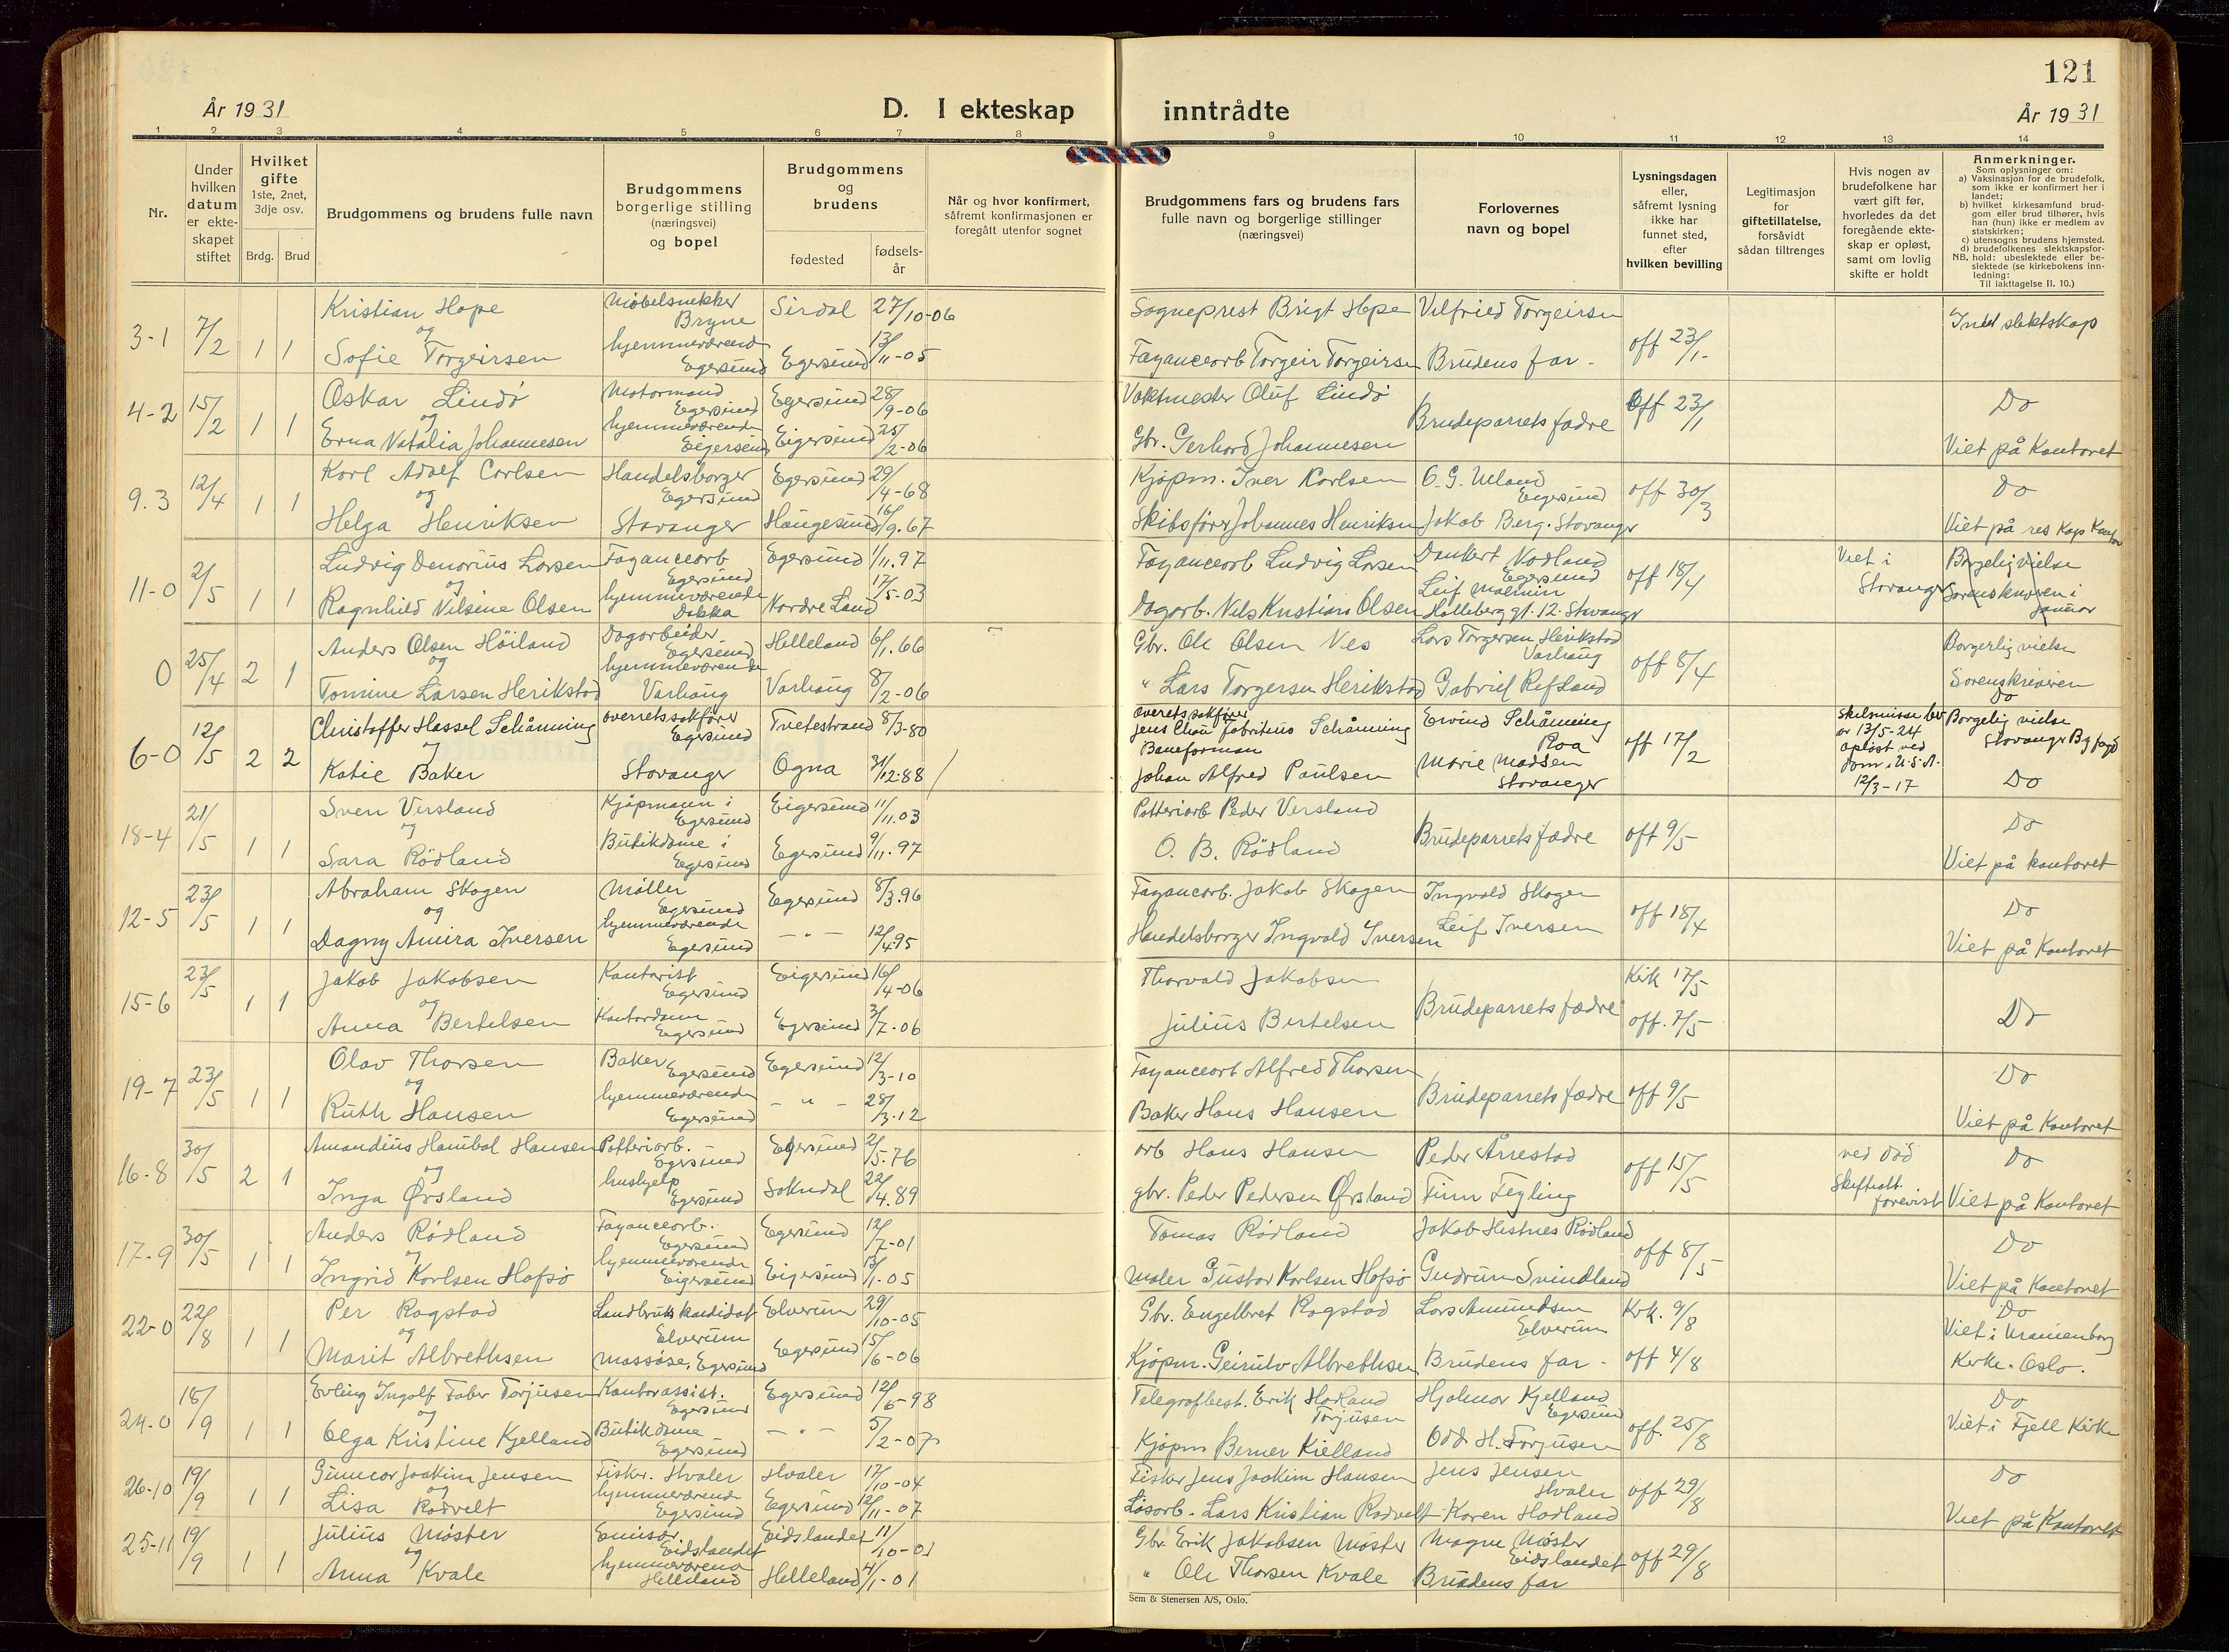 121
År 1931
D. I ekteskap inntrådte
År 1931
1 2 3 4 5 6 7 8 9 10 11 12 13 14
Nr.
Under hvilken datum er ekteskapet stiftet
Hvilket gifte
1ste, 2net, 3dje osv.
Brdg. Brud
Brudgommens og brudens fulle navn
Brudgommens borgerlige stilling
(næringsvei)
og bopel
Brudgommens og brudens
fødested
fødselsår
Når og hvor konfirmert,
såfremt konfirmasjonen er
foregått utenfor sognet
Brudgommens fars og brudens fars
fulle navn og borgerlige stillinger
(næringsvei)
Forlovernes
navn og bopel
Lysningsdagen
eller,
såfremt lysning
ikke har
funnet sted,
efter
hvilken bevilling
Legitimasjon
for
giftetillatelse,
forsåvidt
sådan tiltrenges
Hvis nogen av
brudefolkene har
vært gift før,
hvorledes da det
foregående ekte-
skap er opløst,
samt om lovlig
skifte er holdt
Anmerkninger.
Som oplysninger om:
a) Vaksinasjon for de brudefolk,
som ikke er konfirmert her i
landet;
b) hvilket kirkesamfund brud-
gom eller brud tilhører, hvis
han (hun) ikke er medlem av
statskirken;
c) utensogns brudens hjemsted.
d) brudefolkenes slektskapsfor-
NB. hold: ubeslektede eller be-
slektede (se kirkebokens inn-
ledning:
Til iakttagelse II. 10.)
3-1 7/2 1 1 Kristian Hope Møbelsnekker Bryne Sirdal 27/10-06 Sogneprest Brigt Hope Vilfried Torgeirsen off 23/1- Intet slektskap
og
Sofie Torgeirsen hjemmeværende Egersund Egersund 13/11-05 Fayancearb Torgeir Torgeirsen Brudens far -
4-2 15/2 1 1 Oskar Lindø Motormand Egersund Egersund 28/9-06 Vaktmester Oluf Lindø Brudeparrets fædre Off 23/1 Do
og
Erna Natalia Johannesen hjemmeværende Eigersund Eigersund 25/2-06 Gbr. Gerhard Johannesen Viet på Kontoret
9.3 12/4 1 1 Karl Adolf Carlsen Handelsborger Egersund Egersund 29/4-68 Kjøpm. Iver Karlsen O. G. Ueland Eigersund off 30/3 Do
og
Helga Henriksen Stavanger Haugesund 16/9.67 Skibsfører Johannes Henriksen Jakob Berg. Stavanger Viet på res Kap Kontor
11-0 2/5 1 1 Ludvig Denorius Larsen Fayancearb Egersund Egersund 1/11.97 Fayancearb Ludvig Larsen Dankert Nodland Egersund off 18/4 Viet i Stavanger Borgelig vielse
og
Ragnhild Nilsine Olsen hjemmeværende Dokka Nordre Land 17/5-03 Dagarb. Nils Kristian Olsen Leif Malmin Holleberg gt. 12. Stavanger Sorenskriveren i Jannar
0 25/4 2 1 Anders Olsen Höiland Dagarbeider Egersund Helleland 6/1.66 Gbr. Ole Olsen Nes Lars Torgersen Herikstad Varhaug off 8/4 Borgerlig vielse
og
Tomine Larsen Herikstad hjemmeværende Varhaug Varhaug 8/2-06 " Lars Torgersen Herikstad Gabriel Refsland Sorenskriveren
Do
6-0 12/5 2 2 Christoffer Hassel Schånning overretssakfører Egersund Tvetestrand 8/3-80 Overetssakfører Jens Chan Fabritius Schånning Eivind Schånning Roa off 17/2 Skilsmisse bev av 13/5-24 Borgelig vielse Stavanger By fogd
og
Katie Baker Stavanger Ogna 31/12-88 Baneforman Johan Alfred Paulsen Marie Madsen Stavanger opløst ved dom i U.S.A. 12/3-17 Do
18-4 21/5 1 1 Sven Versland Kjøpmann i Egersund Eigersund 11/11.03 Potteriarb Peder Versland Brudeparrets fædre off 9/5 Do
og
Sara Rödland Butikdame i Egersund Egersund 9/11.97 O. B. Rödland Viet på kontoret
12-5 23/5 1 1 Abraham Skogen Møller Egersund Egersund 8/3.96 Fayancarb. Jakob Skogen Ingvald Skogen off 18/4 Do
og
Dagny Amira Iversen hjemmeværende Egersund - " - 12/4.95 Handelsborger Ingvald Iversen Leif Iversen Viet på Kontoret
15-6 23/5 1 1 Jakob Jakobsen Kontorist Egersund Eigersund 16/4-06 Thorvald Jakobsen Brudeparrets fædre Kirk 17/5 Do
og
Anna Bertelsen Kontordame Egersund Egersund 3/7-06 Julius Bertelsen off. 7/5
19-7 23/5 1 1 Olav Thorsen Baker Egersund Egersund 12/3-10 Fayancearb Alfred Thorsen Brudeparrets fædre off 9/5 Do
og
Ruth Hansen hjemmeværende Egersund - " - 28/3-12 Baker Hans Hansen Viet på Kontoret
16-8 30/5 2 1 Amandius Hanibal Hansen Potteriarb. Egersund Egersund 2/5.76 arb Hans Hansen Peder Årrestad off 15/5 ved död Do
og
Inga Ørsland hushjelp Egersund Sokndal 22/4.89 gbr. Peder Pedersen Ørsland Finn Fegling Skifteatt. forevist Viet på Kontoret
17-9 30/5 1 1 Anders Rødland Fayancearb. Egersund Egersund 12/7-01 Tomas Rødland Jakob Hestnes Rødland off 8/5 Do
og
Ingrid Karlsen Hofsø hjemmeværende Eigersund Eigersund 13/1-05 Maler Gustav Karlsen Hofsø Gudrun Svindland Viet på Kontoret
22-0 22/8 1 1 Per Rogstad Landbrukskandidat Elverum Elverum 29/10-05 Gbr. Engelbret Rogstad Lars Amundsen Elverum Krk. 9/8 Do
og
Marit Albrethsen Massøse, Egersund Egersund 15/6-06 Kjøpm. Geirulv Albrethsen Brudens far - off 4/8 Viet i Uranienborg Kirke. Oslo.
24-0 18/9 1 1 Erling Ingolf Faber Torjusen Kontorassist. Egersund Egersund 12/6-98 Telegrafbest. Erik Hodland Torjusen Hjalmar Kjelland Egersund off. 25/8 Do
og
Olga Kristine Kjelland Butikdame Egersund - " - 5/2-07 Kjøpm Berner Kielland Odd H. Torjusen Viet i Fjell Kirke
26-10 19/9 1 1 Gunnar Joakim Jensen Fisker. Hvaler Hvaler 17/10-04 Fisker Jens Joakim Hansen Jens Jensen Hvaler off 29/8 Do
og
Lisa Rødvelt hjemmeværende Egersund Egersund 12/11-07 Løsarb. Lars Kristian Rødvelt Karen Hodland Viet på Kontoret
25-11 19/9 1 1 Julius Møster Emisær. Eidslandet Eidslandet 11/10-01 Gbr Erik Jakobsen Møster Magne Møster Eidslandet off 29/8
og
Anna Kvale hjemmeværend Helleland Helleland 4/1-01 " Ole Thorsen Kvale Brudens far
Sem & Stenersen A/S, Oslo.